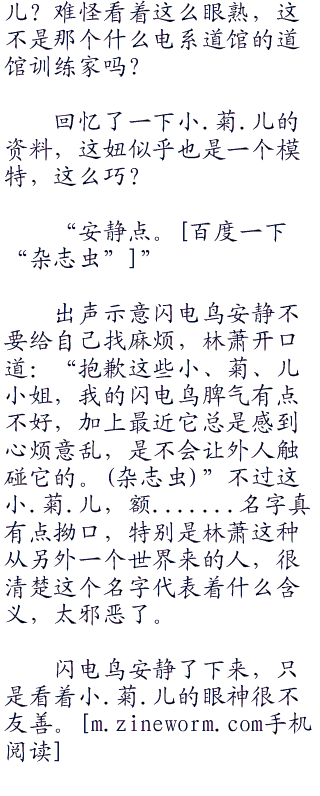 儿？难怪看着这么眼熟，这
不是那个什么电系道馆的道
馆训练家吗？
回忆了一下小.菊.儿的
资料，这妞似乎也是一个模
特，这么巧？
“安静点。[百度一下
“杂志虫”]”
出声示意闪电鸟安静不
要给自己找麻烦，林萧开口
道：“抱歉这些小、菊、儿
小姐，我的闪电鸟脾气有点
不好，加上最近它总是感到
心烦意乱，是不会让外人触
碰它的。(杂志虫)”不过这
小.菊.儿，额.......名字真
有点拗口，特别是林萧这种
从另外一个世界来的人，很
清楚这个名字代表着什么含
义，太邪恶了。
闪电鸟安静了下来，只
是看着小.菊.儿的眼神很不
友善。[m.zineworm.com手机
阅读]